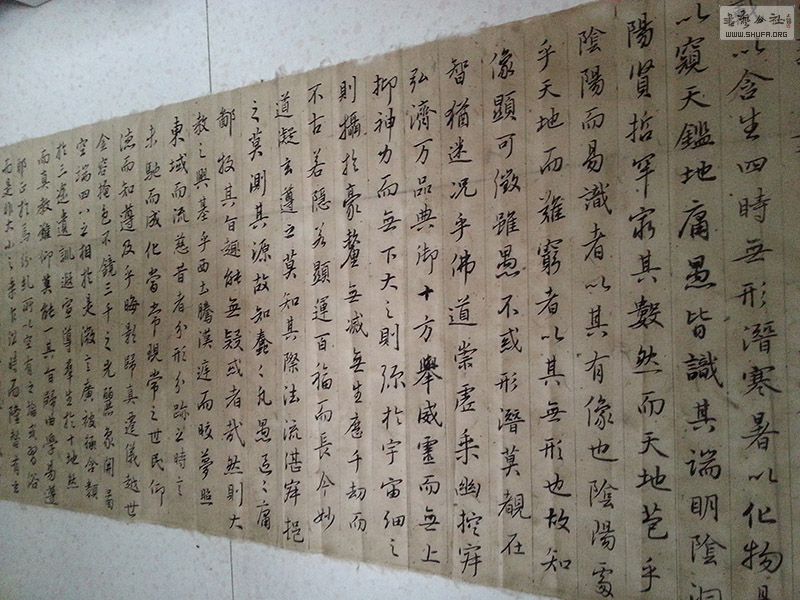 以含生四時無形潛寒暑以化物是
以窺天鑑地庸愚皆識其端明陰洞
陽賢哲罕窮其數然而天地苞乎
陰陽而易識者以其有像也陰陽處
乎天地而難窮者以其無形也故知
像顯可徵雖愚不或形潛莫覩在
智猶迷況乎佛道崇虛乘幽控寂
弘濟万品典御十方舉威靈而無上
抑神力而無下大之則弥於宇宙細之
則攝於豪釐無滅無生歷千劫而
不古若隱若顯運百福而長今妙
道凝玄遵之莫知其際法流湛寂挹
之莫測其源故知蠢々凡愚區々庸
鄙投其旨趣能無疑或者哉然則大
教之興基乎西土騰漢庭而皎夢照
東域而流慈昔者分形分跡之時言
未馳而成化當常現常之世民仰
德而知遵及乎晦影歸真遷儀越世
金容掩色不鏡三千之光麗象開圖
空端四八之相於是微言廣被拯含類
於三途遺訓遐宣導羣生於十地然
而真教難仰莫能一其旨歸曲學易遵
邪正於焉紛糺所以空有之論或習俗
而是非大小之乘乍沿時而隆替有玄
書法公社
WWW.SHUFA.ORG